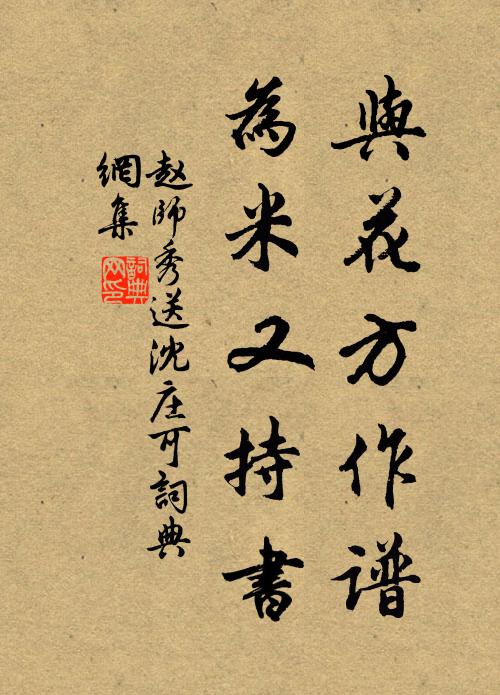 與花方作谱
為米又持書
赵師秀送沈庄可詞典
網集
詞典
网印